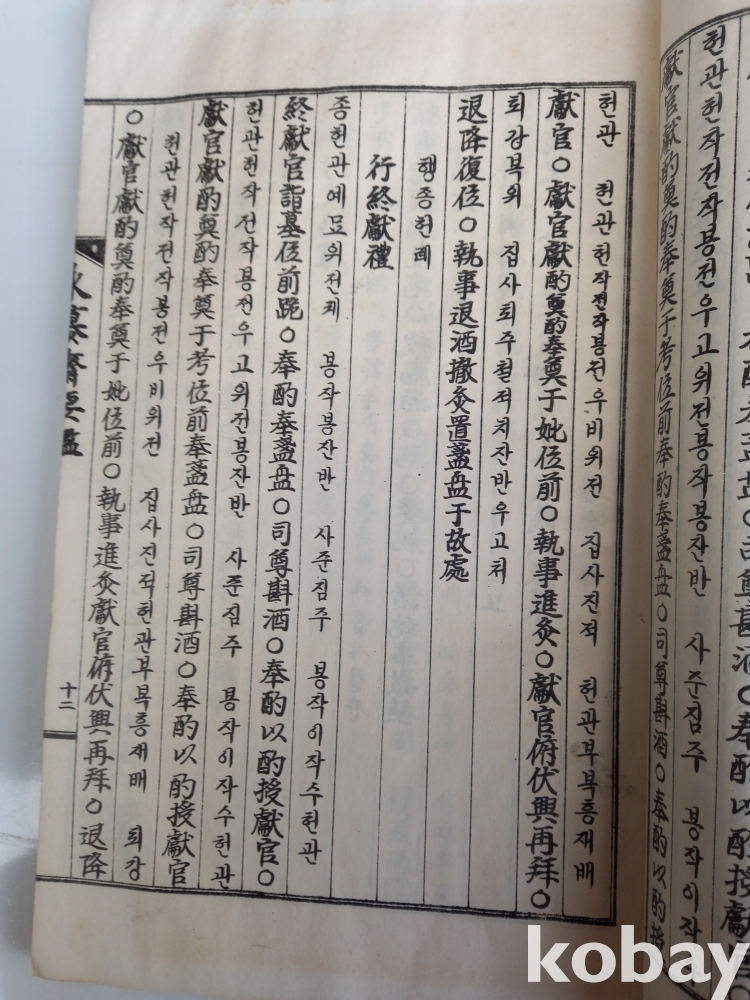 奉盞盘○司尊斟酒○奉酌以酌授獻官
헌관헌작전작봉전우고위전봉작봉잔반 사준짐주 봉작이작
獻官獻酌奠酌奉奠于考位前奉酌奉盞盘○司尊斟酒○奉酌以酌授
헌관 헌관헌작전작봉전우비위전 집사진적 헌관부복흥재배
獻官○獻官獻酌奠酌奉奠于妣位前○執事進炙○獻官俯伏興再拜○
퇴강복위 집사퇴주철적치잔반우고처
退降復位○執事退酒撤炙置盞盘于故處
행종헌례
行終獻禮
종헌관예묘위전궤 봉작봉잔반 사준짐주 봉작이작수헌관
終獻官詣墓位前跪○奉酌奉盞盘○司尊斟酒○奉酌以酌授獻官○
헌관헌작전작봉전우고위전봉잔반 사준짐주 봉작이작수헌관
獻官獻酌奠酌奉奠于考位前奉盞盘○司尊斟酒○奉酌以酌授獻官
헌관헌작전작봉전우비위전 집사진적헌관부복흥재배 퇴강
○獻官獻酌奠酌奉奠于妣位前○執事進炙獻官俯伏興再拜○退降
慕齋要鑑
十二
kobay